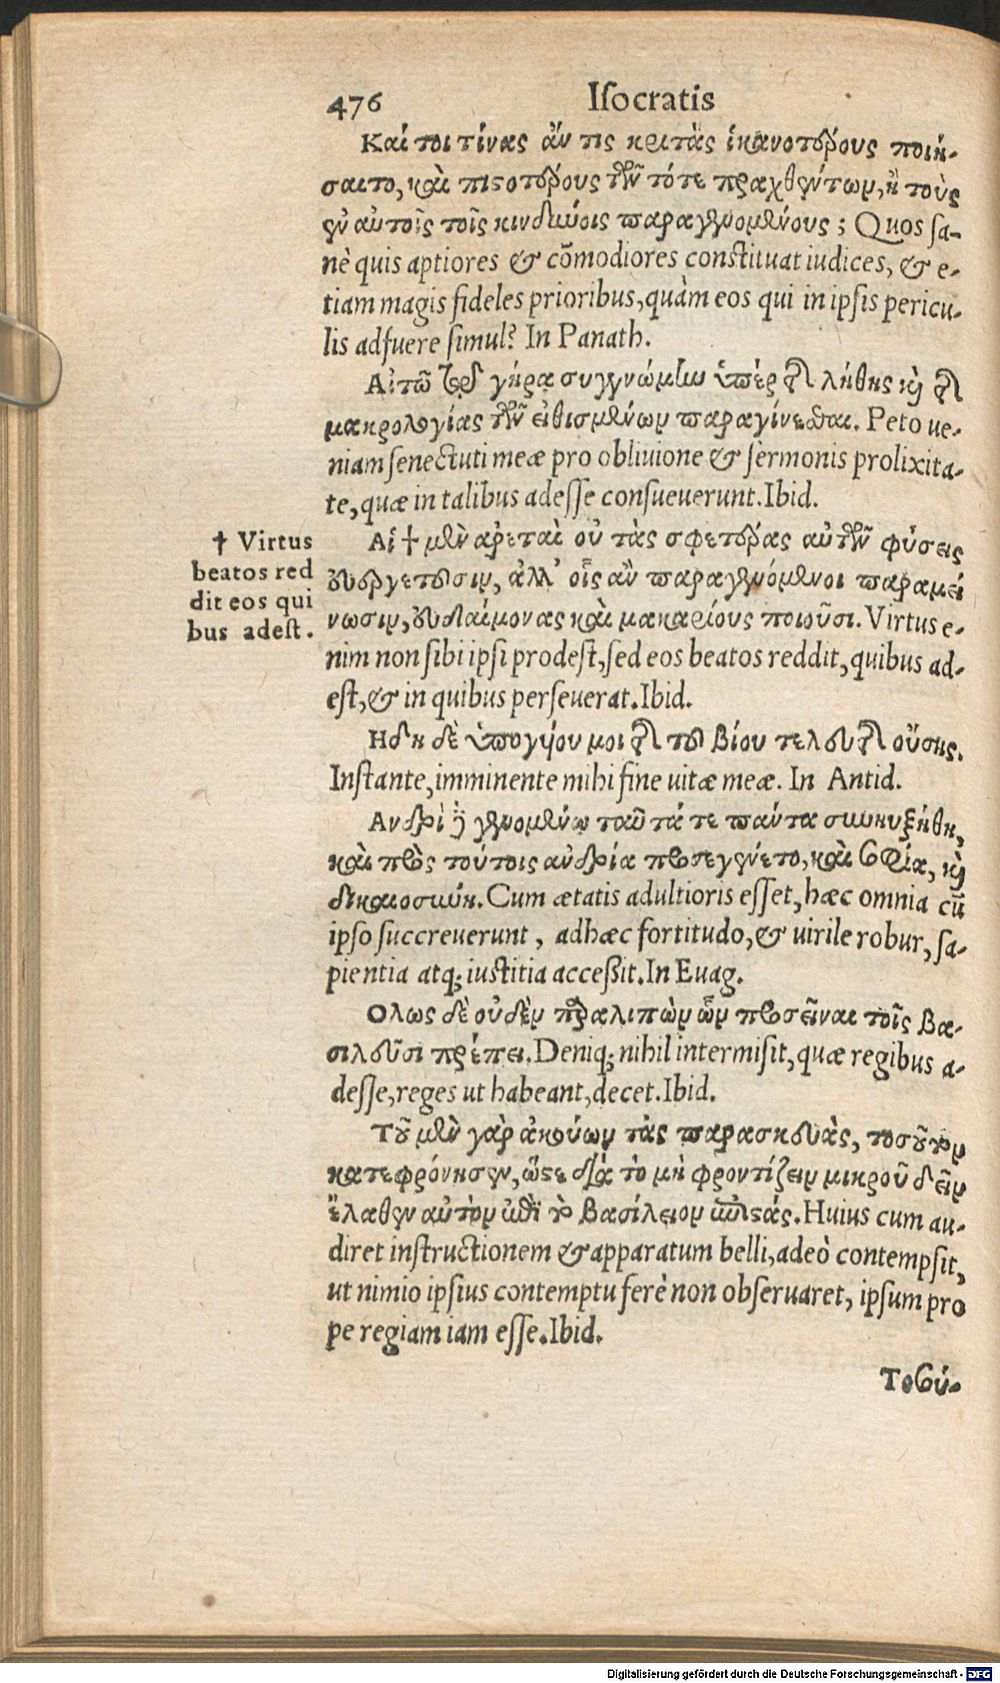 476 Iſocratis
Καί τοι τίνας ἄν τις κριτὰς ἱκανοτέρους ποιή-
σαιτο, καὶ πιστοτέρους τῶν τότε πραχθέντων, ἢ τοὺς
ἐν αὐτοῖς τοῖς κινδύνοις παραγενομένους; Quos ſa-
nè quis aptiores & cõmodiores conſtituat iudices, & e-
tiam magis fideles prioribus, quàm eos qui in ipſis pericu-
lis adfuere ſimul? In Panath.
Αἰτῶ τῷ γήρᾳ συγγνώμην ὑπὲρ τῆς λήθης καὶ τῆς
μακρολογίας τῶν εἰθισμένων παραγίνεσθαι. Peto ue-
niam ſenectuti meæ pro obliuione & ſermonis prolixita-
te, quæ in talibus adeſſe conſueuerunt. Ibid.
† Virtus
beatos red
dit eos qui
bus adeſt.
Αἱ † μὲν ἀρεταὶ οὐ τὰς σφετέρας αὐτῶν φύσεις
εὐεργετοῦσιν, ἀλλ' οἷς ἂν παραγενόμεναι παραμεί
νωσιν, εὐδαίμονας καὶ μακαρίους ποιοῦσι. Virtus e-
nim non ſibi ipſi prodeſt, ſed eos beatos reddit, quibus ad-
eſt, & in quibus perſeuerat. Ibid.
Ηδη δὲ ὑπογύου μοι τῆς τοῦ βίου τελευτῆς οὔσης.
Inſtante, imminente mihi fine uitæ meæ. In Antid.
Ανδρὶ δὲ γενομένῳ ταῦτά τε πάντα συνηυξήθη,
καὶ πρὸς τούτοις ἀνδρία προσεγένετο, καὶ σοφία, καὶ
δικαιοσύνη. Cum ætatis adultioris eſſet, hæc omnia cũ
ipſo ſuccreuerunt, adhæc fortitudo, & uirile robur, ſa-
pientia atq; iuſtitia acceßit. In Euag.
Ολως δὲ οὐδὲν παραλιπὼν ὧν προσεῖναι τοῖς βα-
σιλεῦσι πρέπει. Deniq; nihil intermiſit, quæ regibus a-
deſſe, reges ut habeant, decet. Ibid.
Τοῦ μὲν γὰρ ἀκούων τὰς παρασκευὰς, τοσοῦτον
κατεφρόνησεν, ὥστε διὰ τὸ μὴ φροντίζειν μικροῦ δεῖν
ἔλαθεν αὐτὸν ἐπὶ τὸ βασίλειον ἐπιστάς. Huius cum au-
diret inſtructionem & apparatum belli, adeò contempſit,
ut nimio ipſius contemptu ferè non obſeruaret, ipſum pro
pe regiam iam eſſe. Ibid.
Τοσού-
Digitalisierung gefördert durch die Deutsche Forschungsgemeinschaft - DFG